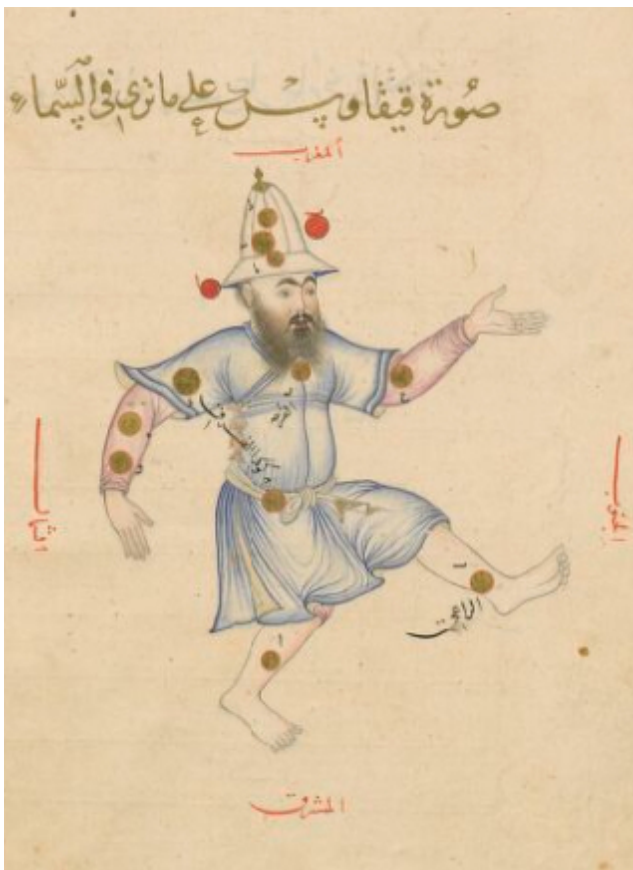 صورة قيقاوس على ما ترى في السماء
المغرب
الشمال
الجنوب
الفرق
الراعي
المشرق